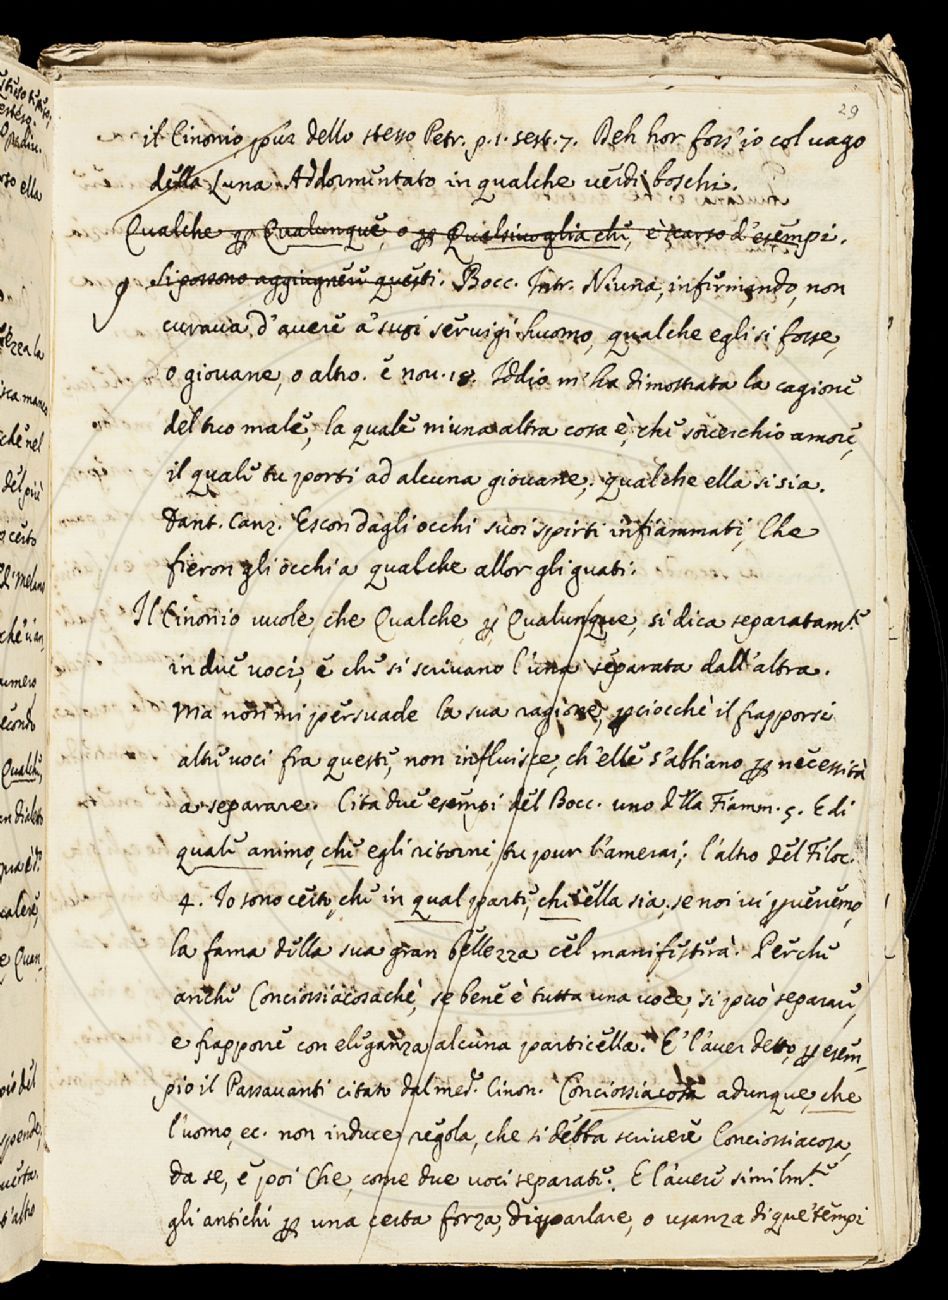 29
il Cinonio pur dello stesso Petr. p. 1. sest. 7. Deh hor foss'io col vago
della Luna Addormentato in qualche verdi boschi.
Qualche per Qualunque, o per Qualsivoglia che, è scarso d'esempi.
Si possono aggiugnere questi. Bocc. Intr. Niuna, infermando, non
curava d'avere a' suoi servigi huomo, qualche egli si fosse,
o giovane, o altro. e nov. 18. Iddio m'ha dimostrata la cagione
del tuo male, la quale niuna altra cosa è, che soverchio amore,
il quale tu porti ad alcuna giovane, qualche ella si sia.
Dant. Canz. Escon dagli occhi suoi spirti infiammati, Che
fieron gli occhi a qualche allor gli guati.
Il Cinonio vuole, che Qualche, per Qualunque, si dica separatamte.
in due voci, e che si scrivano l'una separata dall'altra.
Ma non mi persuade la sua ragione, perciocchè il frapporsi
altre voci fra queste, non influisce, ch'elle s'abbiano per necessità
a separare. Cita due esempi del Bocc. uno della Fiamm. 5. E di
quale animo, che egli ritorni, tu pur l'amerai; l'altro del Filoc.
4. Io sono certo, che in qual parte, che ella sia, se noi vi perverremo,
la fama della sua gran bellezza cel manifesterà. Perche
anche Conciossiacosachè, se bene è tutta una voce, si può separare,
e frapporre con eliganza alcuna particella. E l'aver detto, per esem-
pio il Passavanti citato dal med. Cinon. Conciossia cosa adunque, che
l'uomo, ec. non induce regola, che si debba scrivere Conciossiacosa,
da se, e poi Che, come due voci separate. E l'avere similmte.
gli antichi per una certa forza di parlare, o usanza di que' tempi